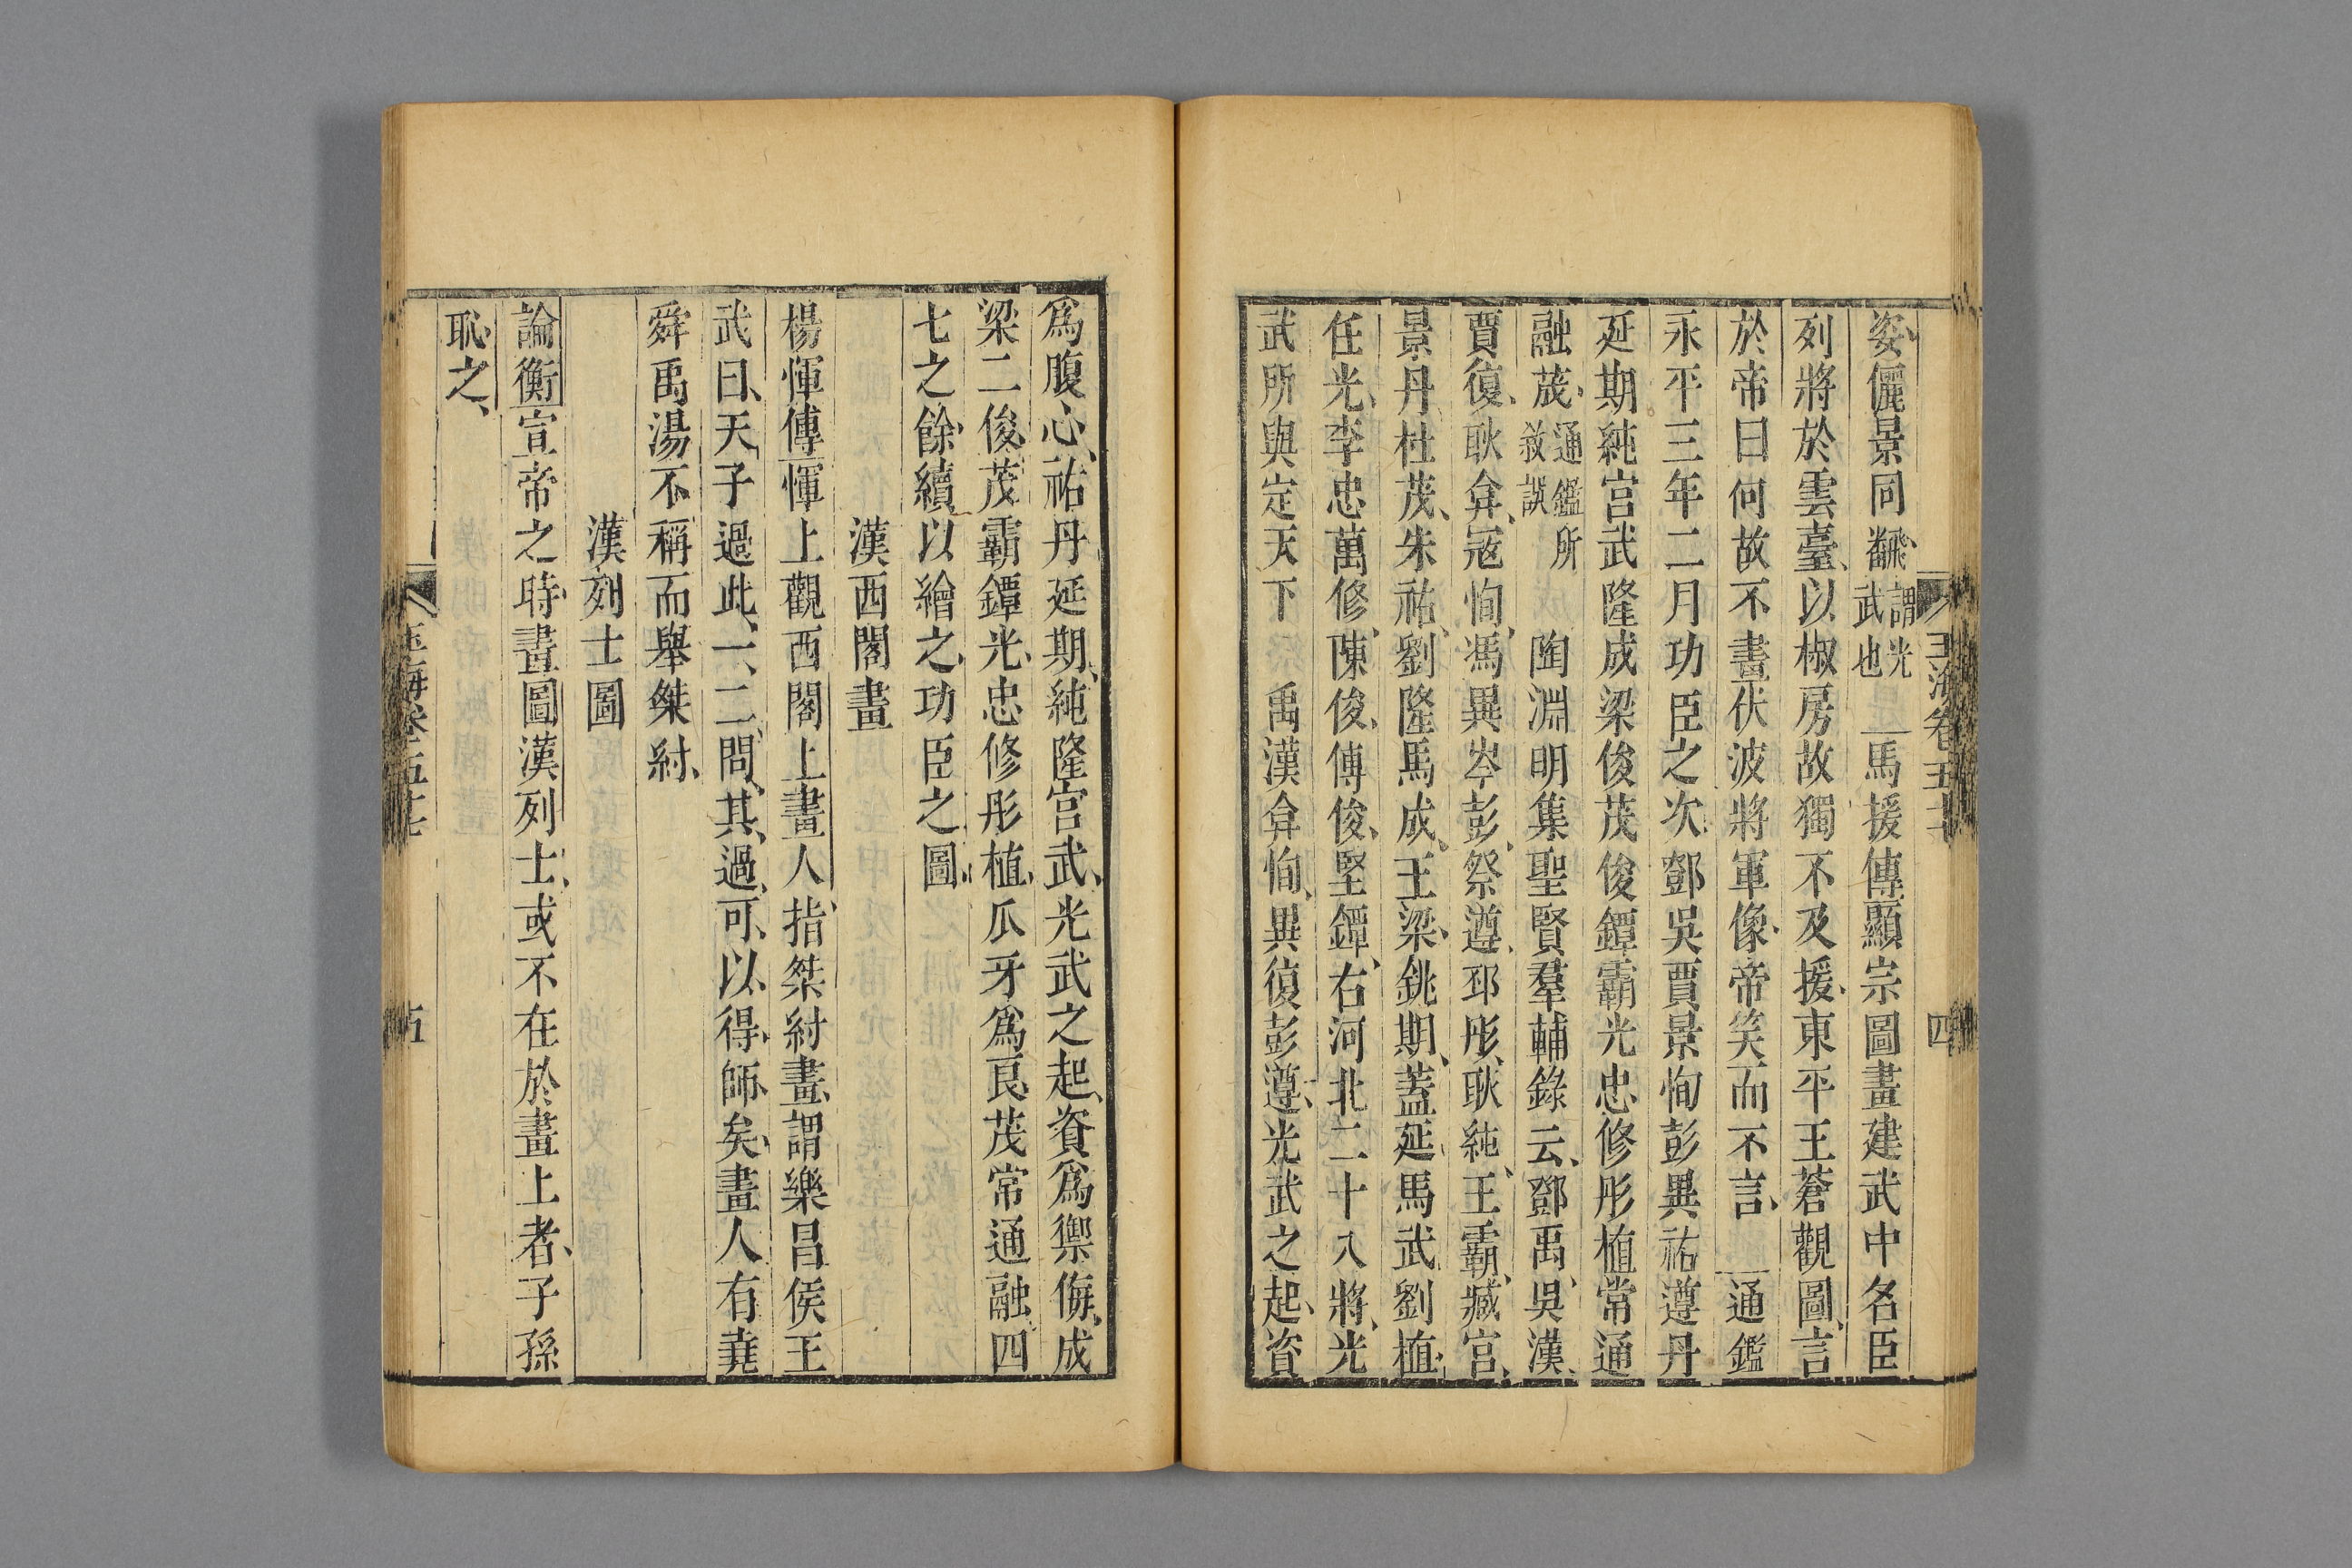 姿儷景同飜飛謂光武也馬援傳顯宗圖畫建武中名臣
列將於雲臺以椒房故獨不及援東平王蒼觀圖言
於帝曰何故不畫伏波將軍像帝笑而不言通鑑
永平三年二月功臣之次鄧吳賈景恂彭異祐遵丹
延期純宮武隆成梁俊茂俊鐔霸光忠修彤植常通
融茂通鑑所敘誤陶淵明集聖賢羣輔錄云鄧禹吳漢
賈復耿弇寇恂馮異岑彭祭遵邳彤耿純王霸臧宮
景丹杜茂朱祐劉隆馬成王梁銚期蓋延馬武劉植
任光李忠萬修陳俊傅俊堅鐔右河北二十八將光
武所與定天下禹漢弇恂異復彭遵光武之起資
爲腹心祐丹延期純隆宮武光武之起資爲禦侮成
梁二俊茂霸鐔光忠修彤植爪牙爲良茂常通融四
七之餘續以繪之功臣之圖
漢西閣畫
楊惲傳惲上觀西閣上畫人指桀紂畫謂樂昌侯王
武曰天子過此一二問其過可以得師矣畫人有堯
舜禹湯不稱而舉桀紂
漢列士圖
論衡宣帝之時畫圖漢列士或不在於畫上者子孫
恥之